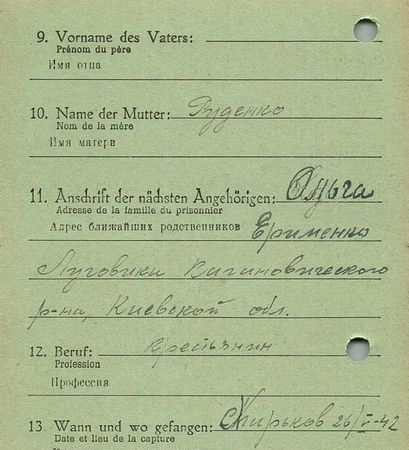 9. Vorname des Vaters:
Prénom du père
Имя отца
10. Name der Mutter: Руденко
Nom de la mère
Имя матери
11. Anschrift der nächsten Angehörigen: Ольга
Adresse de la famille du prisonnier
Адрес ближайших родственников Ерименко
Луговики Кагановического
р-на, Киевской обл.
12. Beruf: крестьянин
Profession
Профессия
13. Wann und wo gefangen: Харьков 26/V-42
Date et lieu de la capture